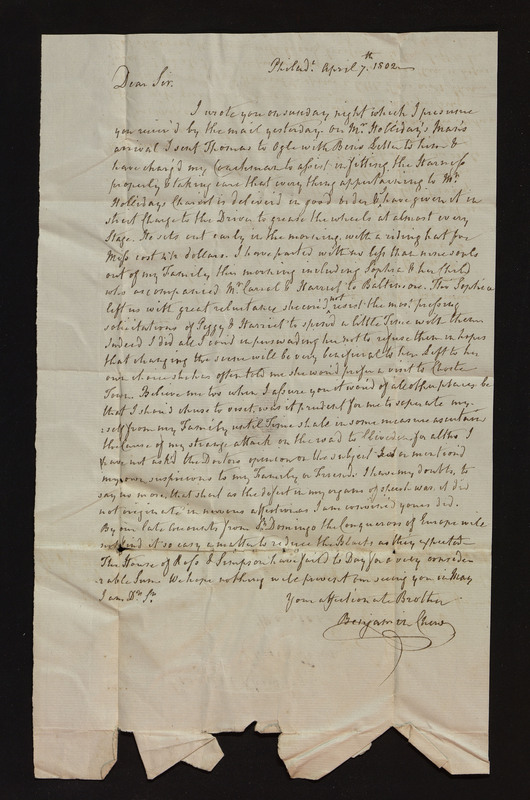 Philad.ª April 7.th 1802
Dear Sir.
I wrote you on sunday night which I presume
you receiv'd by the mail yesterday. On Mr. Holliday's Man's
arrival I sent Thomas to Ogle with Ben's Letter to him &
have charg'd my Coachman to assist in fitting the Harness
properly & taking care that every thing appertaining to Mr.
Hollidays Chariot is deliver'd in good order & have given it in
strict charge to the Driver to grease the wheels at almost every
Stage. He sets out early in the morning, with a riding hat for
Miss cost dollars. I have parted with no less than nine souls
out of my Family this morning including Sophia & her Child
who accompanied Mr. Carrol & Harriet to Baltimore. Tho Sophia
left us with great reluctance she could not resist the most pressing
solicitations of Peggy & Harriet to spend a little Time with them
Indeed I did all I could in perswading her not to refuse them in hopes
that changing the scene will be very beneficial to her. Left to her
own choice she has often told me she would prefer a visit to Chester
Town. Believe me too when I assure you it would of all other places be
that I should chuse to visit, was it prudent for me to seperate my-
self from my Family until Time shall in some measure ascertain
the Cause of my strange attack on the road to Cliveden for altho I
have not ask'd the Doctors opinion on the subject or mention'd
my own suspicions to my Family or Friend. I have my doubts, to
say no more, that short as the defect in my organs of speech was, it did
not originate in nervous affection as I am convinced yours did.
By our late Accounts from St. Domingo the Conquerors of Europe will
not find it so easy a matter to reduce the Blacks as they expected
The House of Ross & Simpson have fail'd to Day for a very conside-
rable Sum. We hope nothing will prevent our seeing you in May
I am Dr. Sr.
Your affectionate Brother
Benjamin Chew